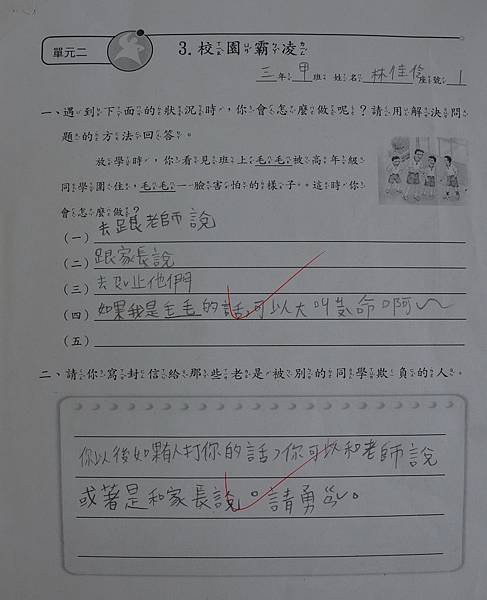 單元二
3.校園霸凌
三年甲班 姓名 林佳 座號 1
一、遇到下面的狀況時，你會怎麼做呢？請用解決問
題的方法回答。
放學時，你看見班上毛毛被高年級
同學圍住，毛毛一臉害怕的樣子。這時你
會怎麼做？
(一) 去跟老師說
(二) 跟家長說
(三) 去ㄗㄨ止他們
(四) 如果我是毛毛的話，可以大叫救命啊～
(五)
二、請你寫封信給那些老是被別的同學欺負的人。
你以後如果有人打你的話，你可以和老師說
或著是和家長說。請勇ㄍㄢˇ。